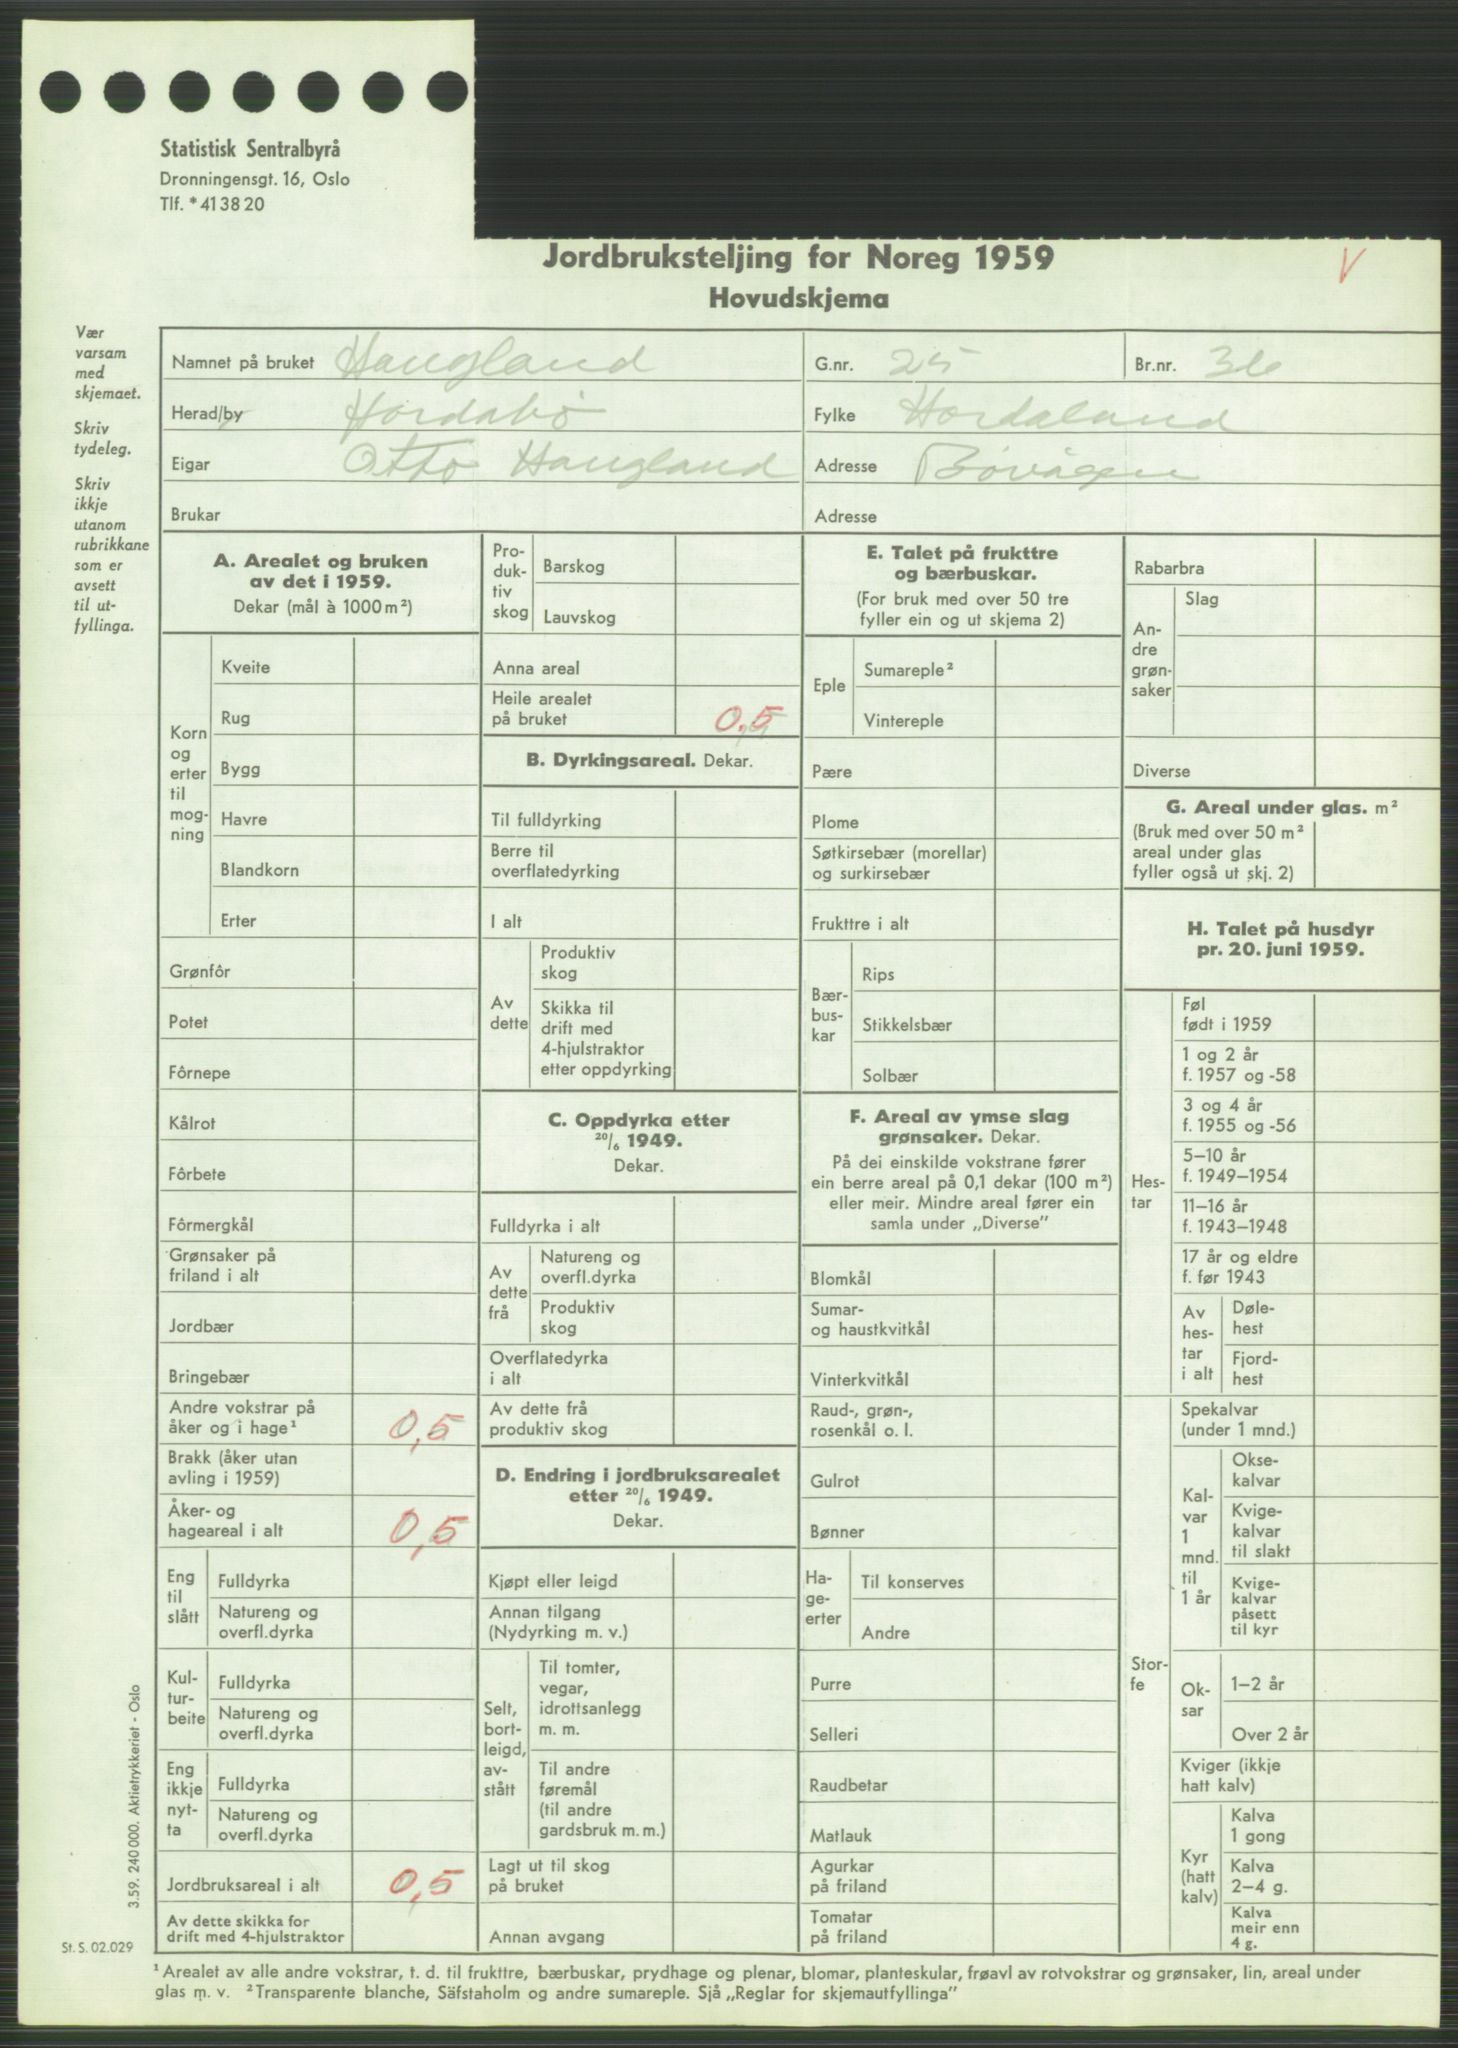 Statistisk Sentralbyrå
Dronningensgt. 16, Oslo
Tlf. *41 38 20
Jordbruksteljing for Noreg 1959
V
Hovudskjema
Vær
varsam
med
skjemaet.
Skriv
tydeleg.
Skriv
ikkje
utanom
rubrikkane
som er
avsett
til ut-
fyllinga.
Namnet på bruket Haugland G.nr. 25 Br.nr. 36
Herad/by Hordabø Fylke Hordaland
Eigar Otto Haugland Adresse Bøvågen
Brukar Adresse
A. Arealet og bruken
av det i 1959.
Dekar (mål à 1000 m²)
Korn
og
erter
til
mog-
ning
Kveite
Rug
Bygg
Havre
Blandkorn
Erter
Grønfôr
Potet
Fôrnepe
Kålrot
Fôrbete
Fôrmergkål
Grønsaker på
friland i alt
Jordbær
Bringebær
Andre vokstrar på
åker og i hage¹ 0,5
Brakk (åker utan
avling i 1959)
Åker- og
hageareal i alt 0,5
Eng
til
slått
Fulldyrka
Natureng og
overfl.dyrka
Kul-
tur-
beite
Fulldyrka
Natureng og
overfl.dyrka
Eng
ikkje
nyt-
ta
Fulldyrka
Natureng og
overfl.dyrka
Jordbruksareal i alt 0,5
Av dette skikka for
drift med 4-hjulstraktor
Pro-
duk-
tiv
skog
Barskog
Lauvskog
Anna areal
Heile arealet
på bruket 0,5
B. Dyrkingsareal. Dekar.
Til fulldyrking
Berre til
overflatedyrking
I alt
Av
dette
Produktiv
skog
Skikka til
drift med
4-hjulstraktor
etter oppdyrking
C. Oppdyrka etter
20/6 1949.
Dekar.
Fulldyrka i alt
Av
dette
frå
Natureng og
overfl.dyrka
Produktiv
skog
Overflatedyrka
i alt
Av dette frå
produktiv skog
D. Endring i jordbruksarealet
etter 20/6 1949.
Dekar.
Kjøpt eller leigd
Annan tilgang
(Nydyrking m. v.)
Selt,
bort-
leigd,
av-
stått
Til tomter,
vegar,
idrottsanlegg
m. m.
Til andre
føremål
(til andre
gardsbruk m. m.)
Lagt ut til skog
på bruket
Annan avgang
E. Talet på frukttre
og bærbuskar.
(For bruk med over 50 tre
fyller ein og ut skjema 2)
Eple
Sumareple²
Vintereple
Pære
Plome
Søtkirsebær (morellar)
og surkirsebær
Frukttre i alt
Bær-
bus-
kar
Rips
Stikkelsbær
Solbær
F. Areal av ymse slag
grønsaker. Dekar.
På dei einskilde vokstrane fører
ein berre areal på 0,1 dekar (100 m²)
eller meir. Mindre areal fører ein
samla under „Diverse”
Blomkål
Sumar-
og haustkvitkål
Vinterkvitkål
Raud-, grøn-,
rosenkål o. l.
Gulrot
Bønner
Ha-
ge-
erter
Til konserves
Andre
Purre
Selleri
Raudbetar
Matlauk
Agurkar
på friland
Tomatar
på friland
Rabarbra
An-
dre
grøn-
saker
Slag
Diverse
G. Areal under glas. m²
(Bruk med over 50 m²
areal under glas
fyller også ut skj. 2)
H. Talet på husdyr
pr. 20. juni 1959.
Hes-
tar
Føl
født i 1959
1 og 2 år
f. 1957 og -58
3 og 4 år
f. 1955 og -56
5–10 år
f. 1949–1954
11–16 år
f. 1943–1948
17 år og eldre
f. før 1943
Av
hes-
tar
i alt
Døle-
hest
Fjord-
hest
Stor-
fe
Spekalvar
(under 1 mnd.)
Kal-
var
1
mnd.
til
1 år
Okse-
kalvar
Kvige-
kalvar
til slakt
Kvige-
kalvar
påsett
til kyr
Ok-
sar
1–2 år
Over 2 år
Kviger (ikkje
hatt kalv)
Kyr
(hatt
kalv)
Kalva
1 gong
Kalva
2–4 g.
Kalva
meir enn
4 g.
3.59. 240 000. Aktietrykkeriet - Oslo
St. S. 02.029
¹ Arealet av alle andre vokstrar, t. d. til frukttre, bærbuskar, prydhage og plenar, blomar, planteskular, frøavl av rotvokstrar og grønsaker, lin, areal under
glas m. v. ² Transparente blanche, Säfstaholm og andre sumareple. Sjå „Reglar for skjemautfyllinga”